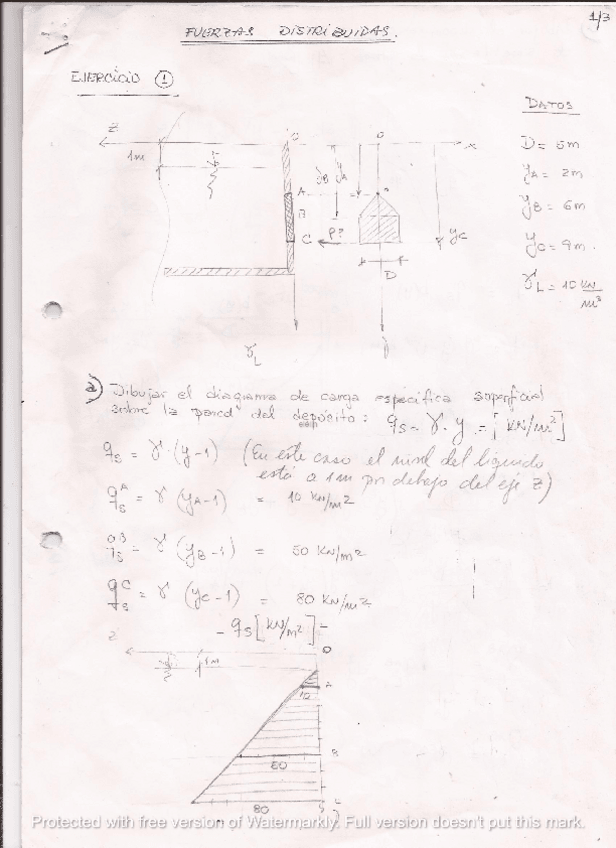 1/3
FUERZAS DISTRIBUIDAS.
EJERCICIO ①
DATOS
Z
O
O
x
1m
D = 5m
yB yA
A
yA = 2m
B
yB = 6m
P?
C
yC
yC = 9m.
D
γL = 10 KN/m³
γL
a) Dibujar el diagrama de carga específica superficial
sobre la pared del depósito: qs = γ · y = [KN/m²]
qs = γ · (y-1) (En este caso el nivel del líquido
está a 1m por debajo del eje Z)
qsA = γ (yA-1) = 10 KN/m²
qsB = γ (yB-1) = 50 KN/m²
qsC = γ (yC-1) = 80 KN/m²
- qs [KN/m²]
Z
O
1m
10
80
Protected with free version of Watermarkly. Full version doesn't put this mark.